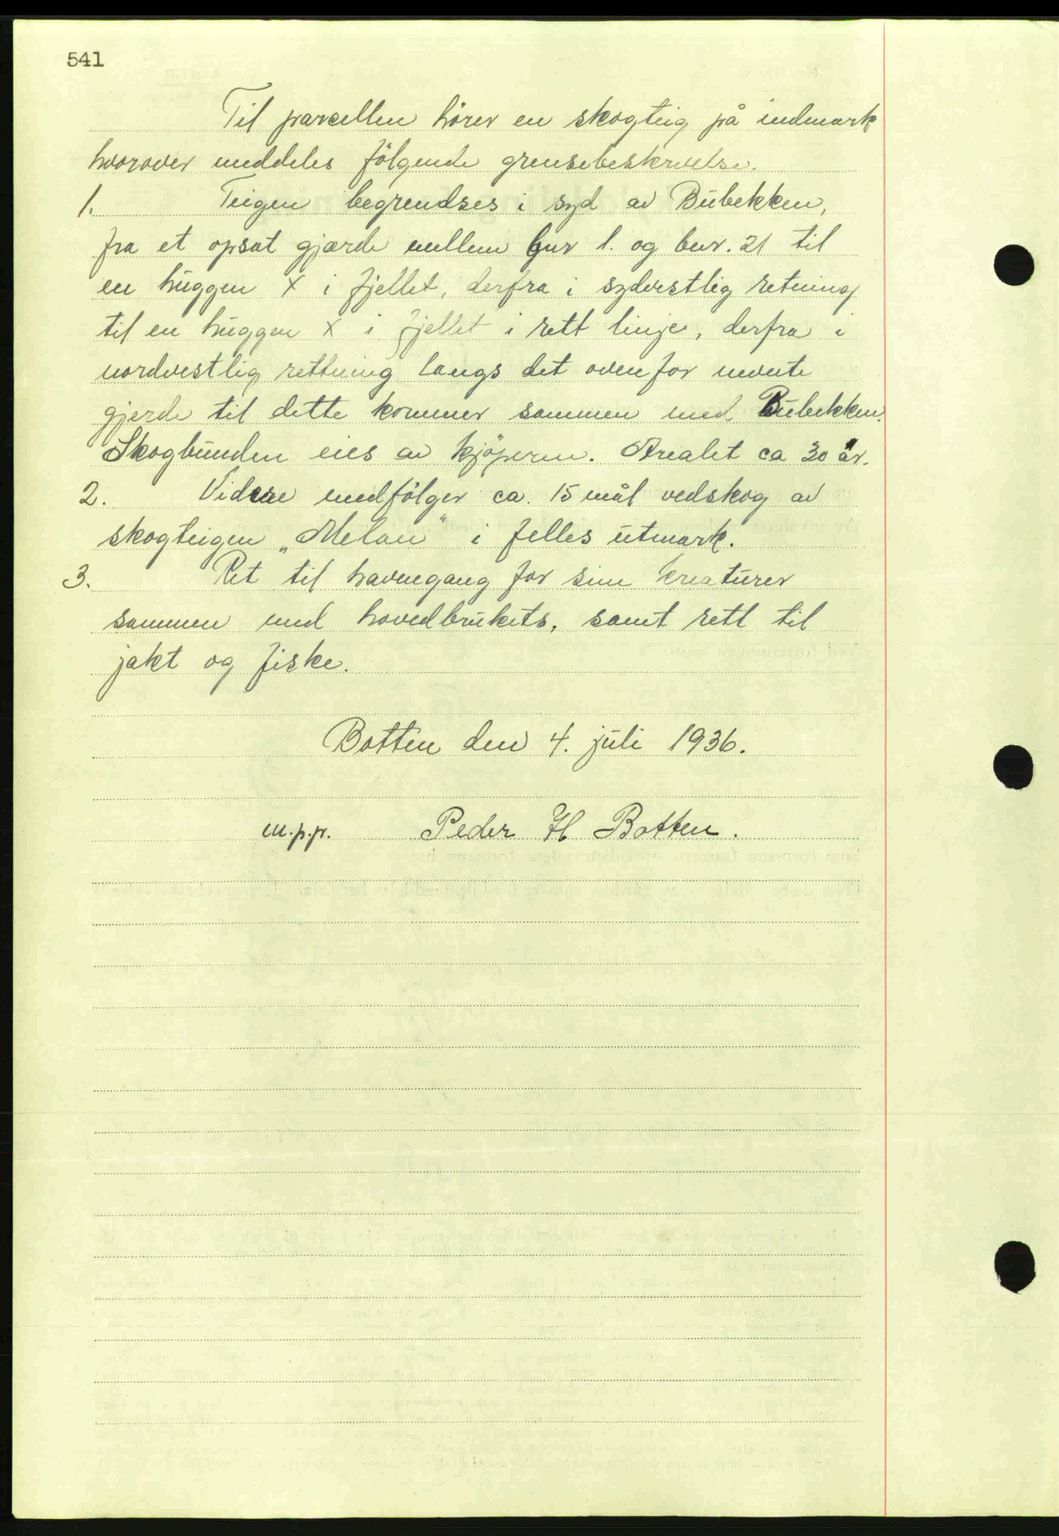 541
Til parcellen hörer en skogteig på indmark
hvorover meddeles følgende grensebeskrivelse.
1. Teigen begrendses i syd av Bubekken,
fra et opsat gjærde mellem gnr 1. og bnr. 21 til
en huggen X i fjellet, derfra i sydvestlig retning
til en huggen X i fjellet i rett linje, derfra i
nordvestlig rettning langs det ovenfor nevnte
gjerde til dette kommer sammen med Bubekken.
Skogbunden eies av kjöperen. Arealet ca 30 ar.
2. Videre medfölger ca. 15 mål vedskog av
skogteigen „Melan" i felles utmark.
3. Ret til havnegang for sine kreaturer
sammen med hovedbrukets, samt rett til
jakt og fiske.
Botten den 4. juli 1936.
m.p.p. Peder H Botten.